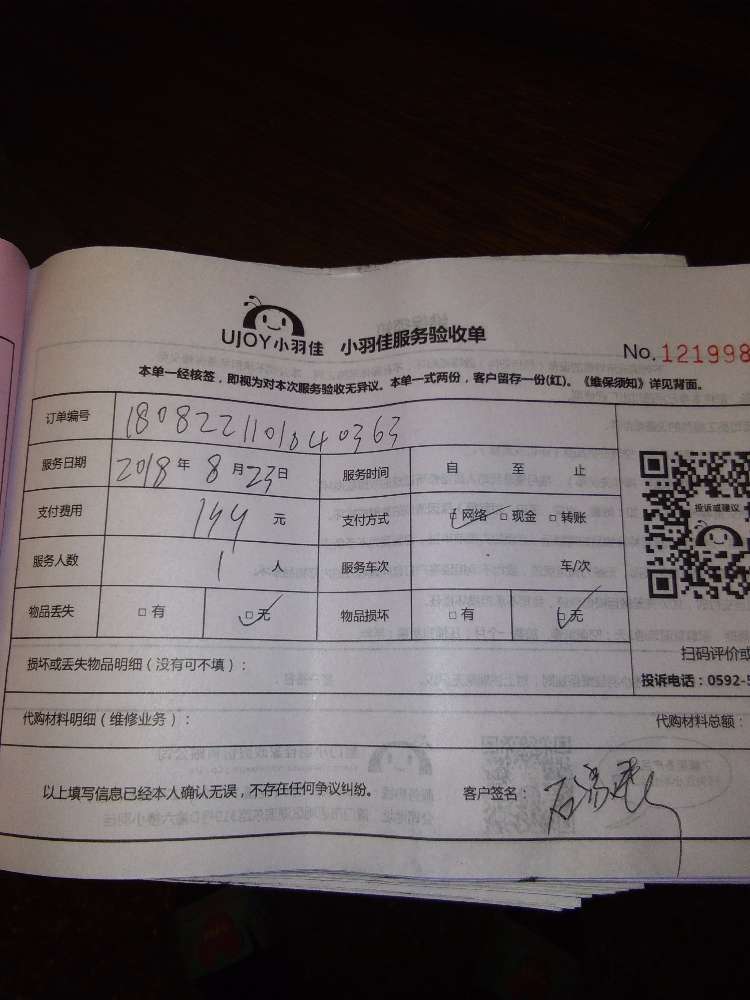 UJOY小羽佳 小羽佳服务验收单
No. 121998
本单一经核签，即视为对本次服务验收无异议。本单一式两份，客户留存一份(红)。《维保须知》详见背面。
订单编号 1808221101040363
服务日期 2018 年 8 月 23 日 服务时间 自 至 止
投诉或建议
支付费用 144 元 支付方式 ☑网络 □现金 □转账
服务人数 1 人 服务车次 车/次
物品丢失 □有 ☑无 物品损坏 □有 ☑无
扫码评价或
损坏或丢失物品明细（没有可不填）：
投诉电话：0592-5
代购材料明细（维修业务）： 代购材料总额：
以上填写信息已经本人确认无误，不存在任何争议纠纷。 客户签名：